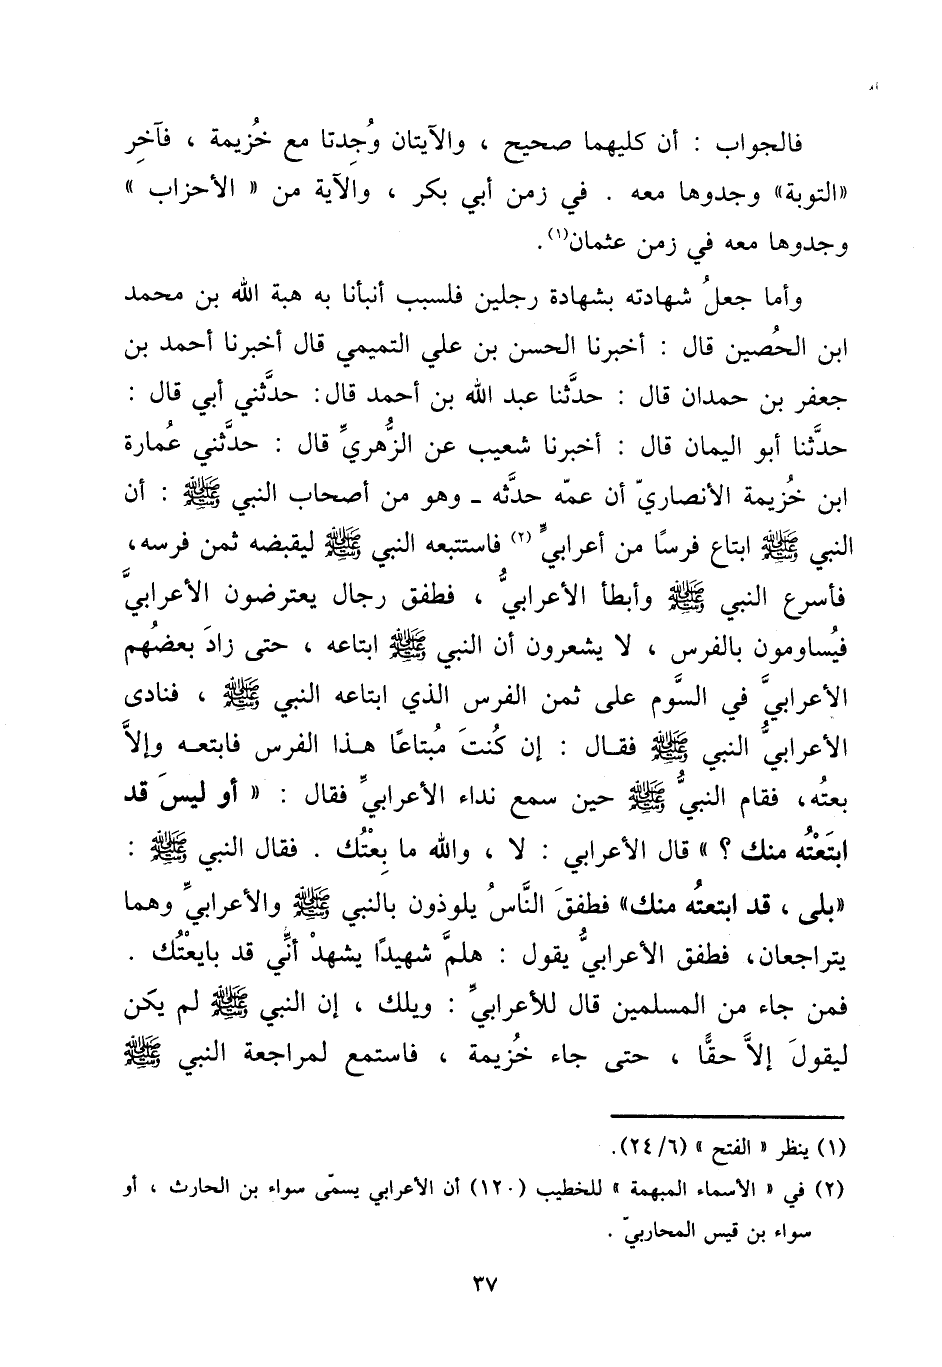 فالجواب : أن كليهما صحيح ، والآيتان وُجِدتا مع خُزيمة ، فآخِر
«التوبة» وجدوها معه . في زمن أبي بكر ، والآية من « الأحزاب »
وجدوها معه في زمن عثمان(١).
وأما جعلُ شهادته بشهادة رجلين فلسبب أنبأنا به هبة الله بن محمد
ابن الحُصين قال : أخبرنا الحسن بن علي التميمي قال أخبرنا أحمد بن
جعفر بن حمدان قال : حدَّثنا عبد الله بن أحمد قال: حدَّثني أبي قال :
حدَّثنا أبو اليمان قال : أخبرنا شعيب عن الزُّهريِّ قال : حدَّثني عُمارة
ابن خُزيمة الأنصاريّ أن عمّه حدَّثه ـ وهو من أصحاب النبي ﷺ : أن
النبي ﷺ ابتاع فرسًا من أعرابيٍّ (٢) فاستتبعه النبي ﷺ ليقبضه ثمن فرسه،
فأسرع النبي ﷺ وأبطأ الأعرابيُّ ، فطفق رجال يعترضون الأعرابيَّ
فيُساومون بالفرس ، لا يشعرون أن النبي ﷺ ابتاعه ، حتى زادَ بعضُهم
الأعرابيَّ في السَّوم على ثمن الفرس الذي ابتاعه النبي ﷺ ، فنادى
الأعرابيُّ النبي ﷺ فقـال : إن كُنتَ مُبتاعًا هـذا الفرس فابتعـه وإلاَّ
بعتُه، فقام النبيُّ ﷺ حين سمع نداء الأعرابيِّ فقال : « أو ليسَ قد
ابتَعْتُه منك ؟ » قال الأعرابي : لا ، والله ما بِعْتُك . فقال النبي ﷺ :
«بلى ، قد ابتعتُه منك» فطفقَ النَّاسُ يلوذون بالنبي ﷺ والأعرابيِّ وهما
يتراجعان، فطفق الأعرابيُّ يقول : هلمَّ شهيدًا يشهدْ أنِّي قد بايعْتُك .
فمن جاء من المسلمين قال للأعرابيِّ : ويلك ، إن النبي ﷺ لم يكن
ليقولَ إلاَّ حقًّا ، حتى جاء خُزيمة ، فاستمع لمراجعة النبي ﷺ
(١) ينظر « الفتح » (٢٤/٦).
(٢) في « الأسماء المبهمة » للخطيب (١٢٠) أن الأعرابي يسمّى سواء بن الحارث ، أو
سواء بن قيس المحاربيّ .
٣٧